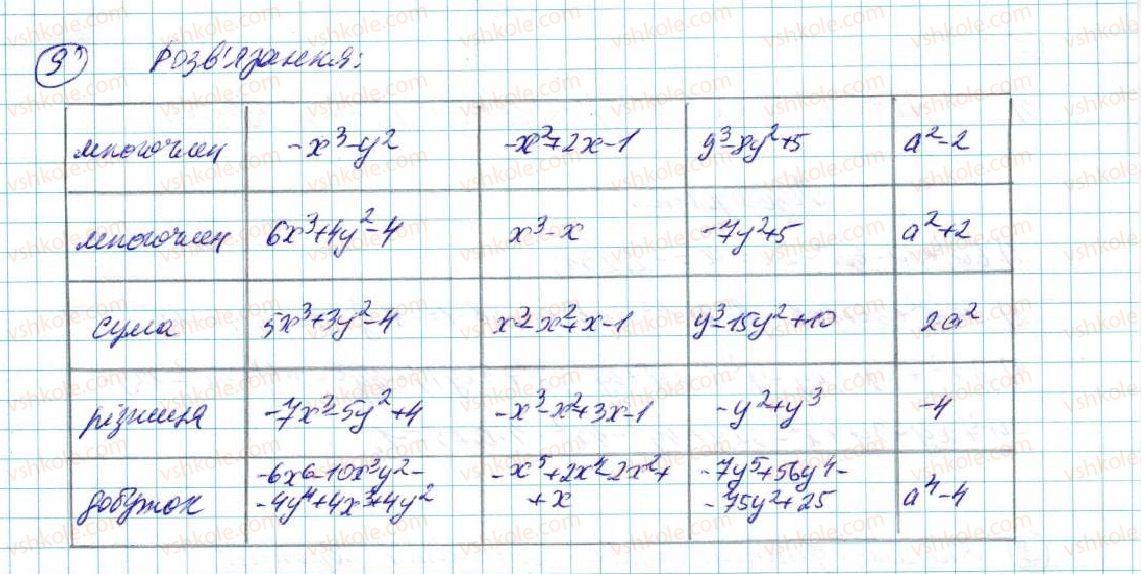 9 Розв'язання:
многочлен -x³-y² -x²+2x-1 y³-8y²+5 a²-2
многочлен 6x³+4y²-4 x³-x -7y²+5 a²+2
сума 5x³+3y²-4 x³-x²+x-1 y³-15y²+10 2a²
різниця -7x³-5y²+4 -x³-x²+3x-1 -y²+y³ -4
добуток -6x6-10x³y²- -x⁵+2x⁴-2x²+ -7y⁵+56y⁴- a⁴-4
-4y⁴+4x³+4y² +x -75y²+25